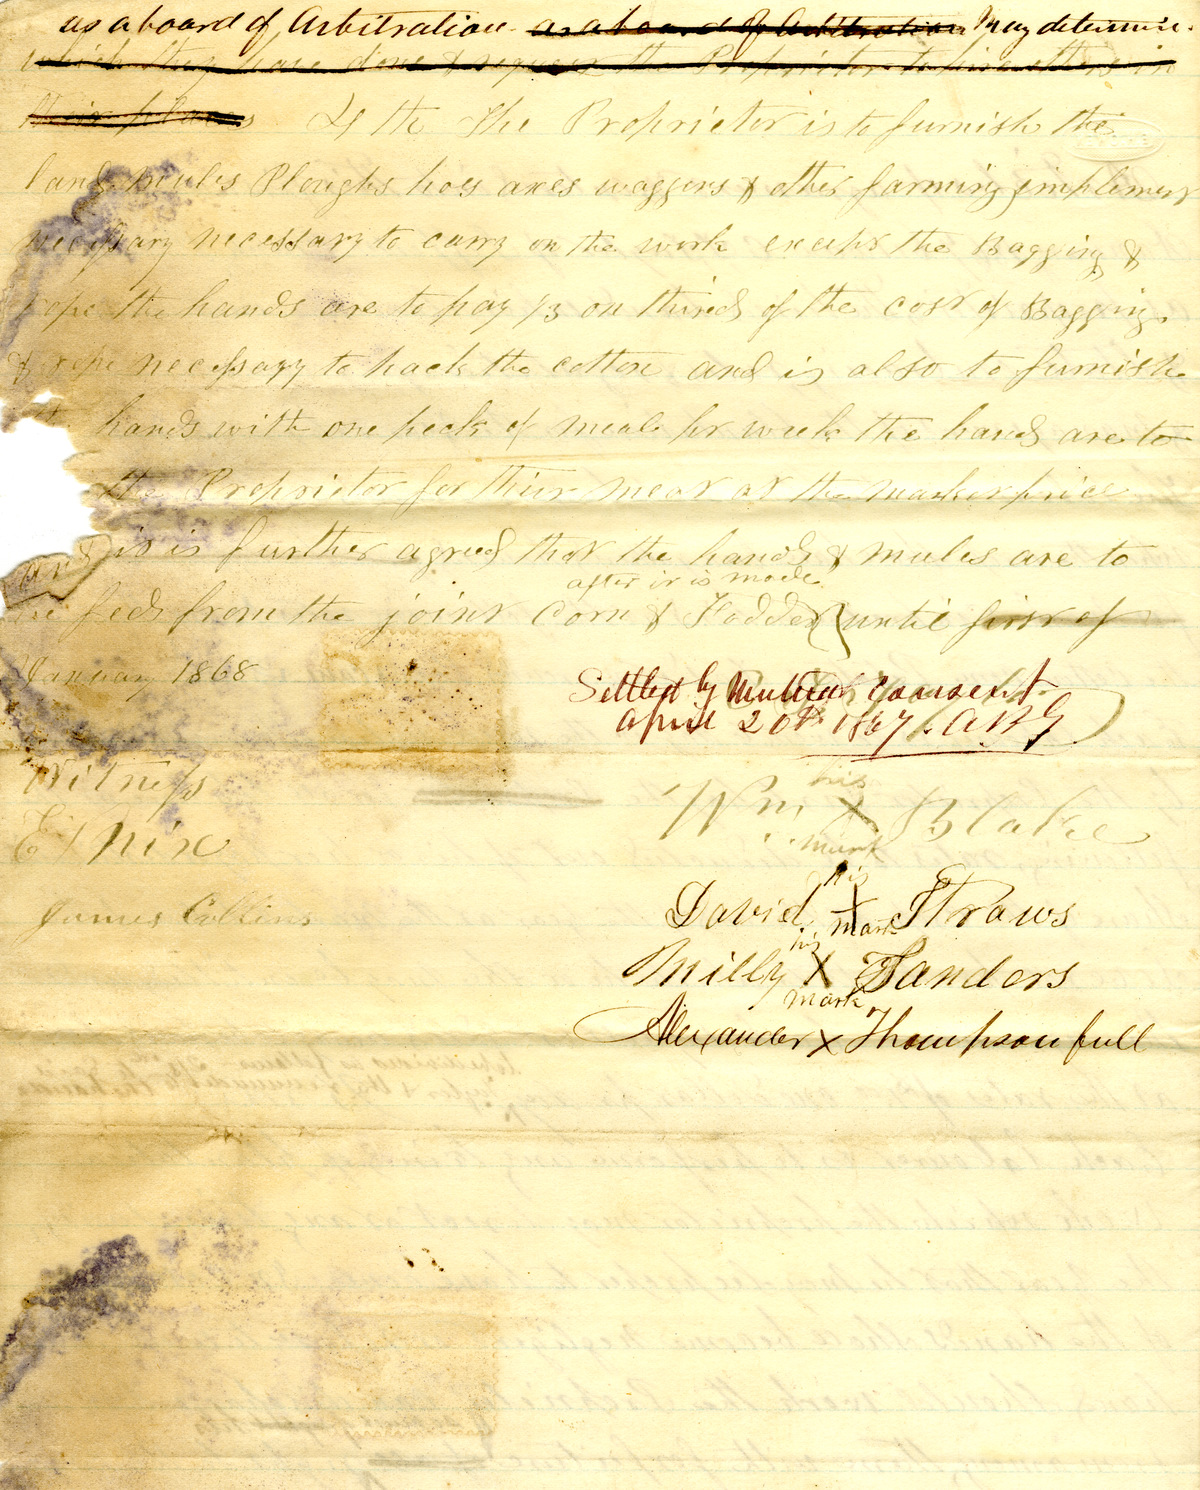 as a board of Arbitration as a board of Arbitration may determine.
which they have done & request the Proprietor to hire others in
their places 4th The Proprietor is to furnish the
land mules Ploughs hoes axes waggons & other farming implements
necessary necessary to carry on the work except the Bagging &
rope the hands are to pay 1/3 on thirds of the cost of Bagging
& rope necessary to pack the cotton and is also to furnish
the hands with one peck of meal pr week the hands are to
the Proprietor for their meat at the market price
and it is further agreed that the hands & mules are to
after it is made
be fed from the joint Corn & Fodder until first of
January 1868
Settled by Mutual Consent
April 20th 1867. ABG
Witness
E Nix
James Collins
his
Wm X Blake
mark
his
David X Straws
mark
his
Milly X Sanders
mark
Alexander X Thompson full